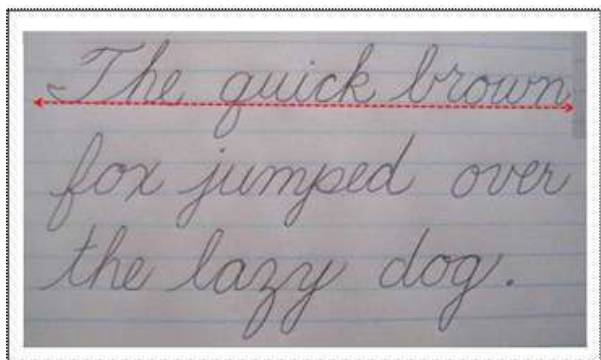 The quick brown
fox jumped over
the lazy dog.